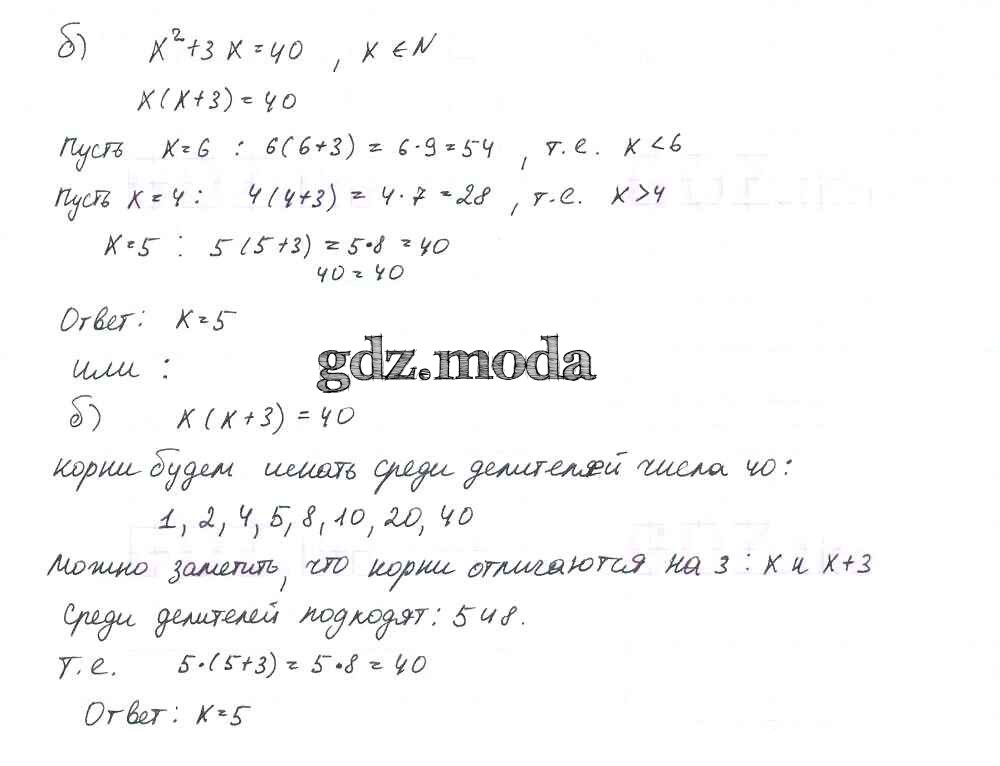 б) x²+3x=40, x∈N
x(x+3)=40
Пусть x=6 : 6(6+3) = 6·9=54, т.е. x<6
Пусть x=4: 4(4+3) = 4·7=28, т.е. x>4
x=5 : 5(5+3) = 5·8 =40
40=40
Ответ: x=5
или :
gdz.moda
б) x(x+3)=40
корни будем искать среди делителей числа 40:
1, 2, 4, 5, 8, 10, 20, 40
Можно заметить, что корни отличаются на 3 : x и x+3
Среди делителей подходят: 5 и 8.
т.е. 5·(5+3)=5·8=40
Ответ: x=5